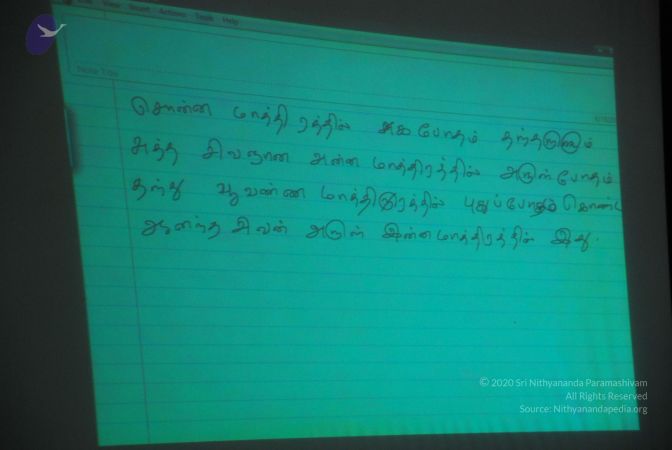 Edit View Insert Actions Tools Help
Note Title
சொன்ன மாத்திரத்தில் சுக போதம் தந்தருளும்
அத்த சிவஞான அன்ன மாத்திரத்தில் அருள்போதம்
தந்து பூவண்ண மாத்திரத்தில் புதுப்போதும் கொண்ட
ஆனந்த சிவன் அருள் இன்னமாத்திரத்தில் இது.
© 2020 Sri Nithyananda Paramashivam
All Rights Reserved
Source: Nithyanandapedia.org